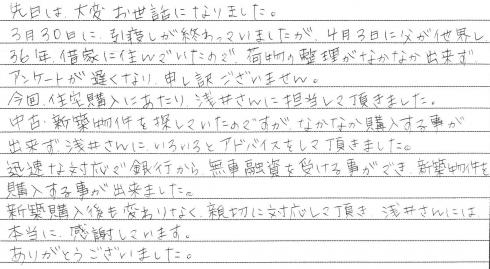 先日は、大変お世話になりました。
3月30日に、引越しが終わっていましたが、4月3日に父が他界し
36年、借家に住んでいたので、荷物の整理がなかなか出来ず
アンケートが遅くなり、申し訳ございません。
今回、住宅購入にあたり、浅井さんに担当して頂きました。
中古・新築物件を探していたのですが、なかなか購入する事が
出来ず、浅井さんに、いろいろとアドバイスをして頂きました。
迅速な対応で銀行から、無事融資を受ける事ができ、新築物件を
購入する事が出来ました。
新築購入後も変わりなく、親切に対応して頂き、浅井さんには
本当に、感謝しています。
ありがとうございました。